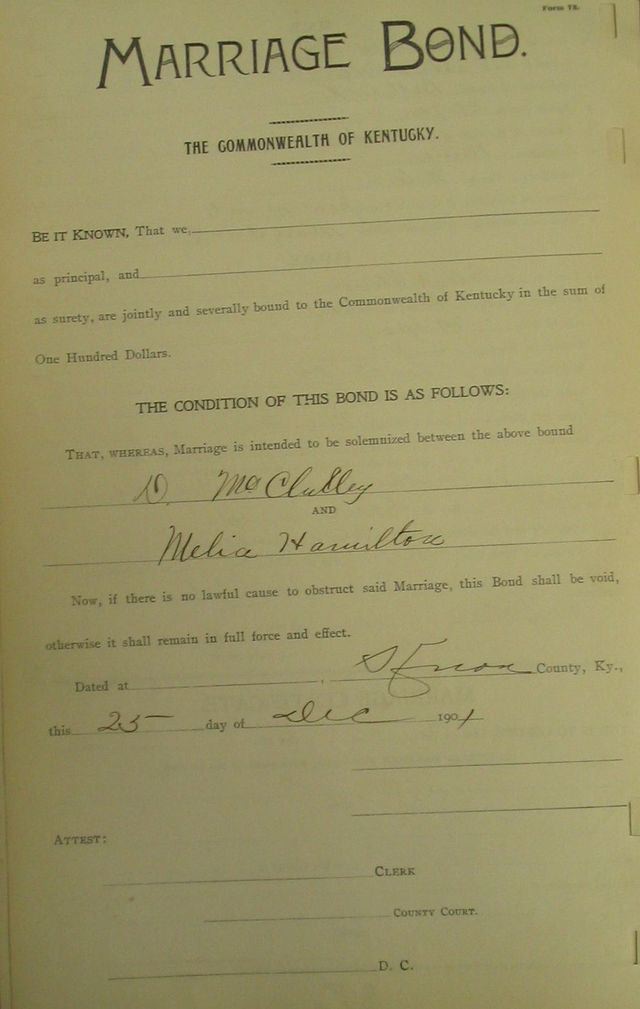 Form 73.
MARRIAGE BOND.
THE COMMONWEALTH OF KENTUCKY.
BE IT KNOWN, That we,
as principal, and
as surety, are jointly and severally bound to the Commonwealth of Kentucky in the sum of
One Hundred Dollars.
THE CONDITION OF THIS BOND IS AS FOLLOWS:
THAT, WHEREAS, Marriage is intended to be solemnized between the above bound
D.
AND
Melia Hamilton
Now, if there is no lawful cause to obstruct said Marriage, this Bond shall be void,
otherwise it shall remain in full force and effect.
Dated at , County, Ky.,
this 25 day of Dec 1901
ATTEST:
CLERK
COUNTY COURT.
D. C.